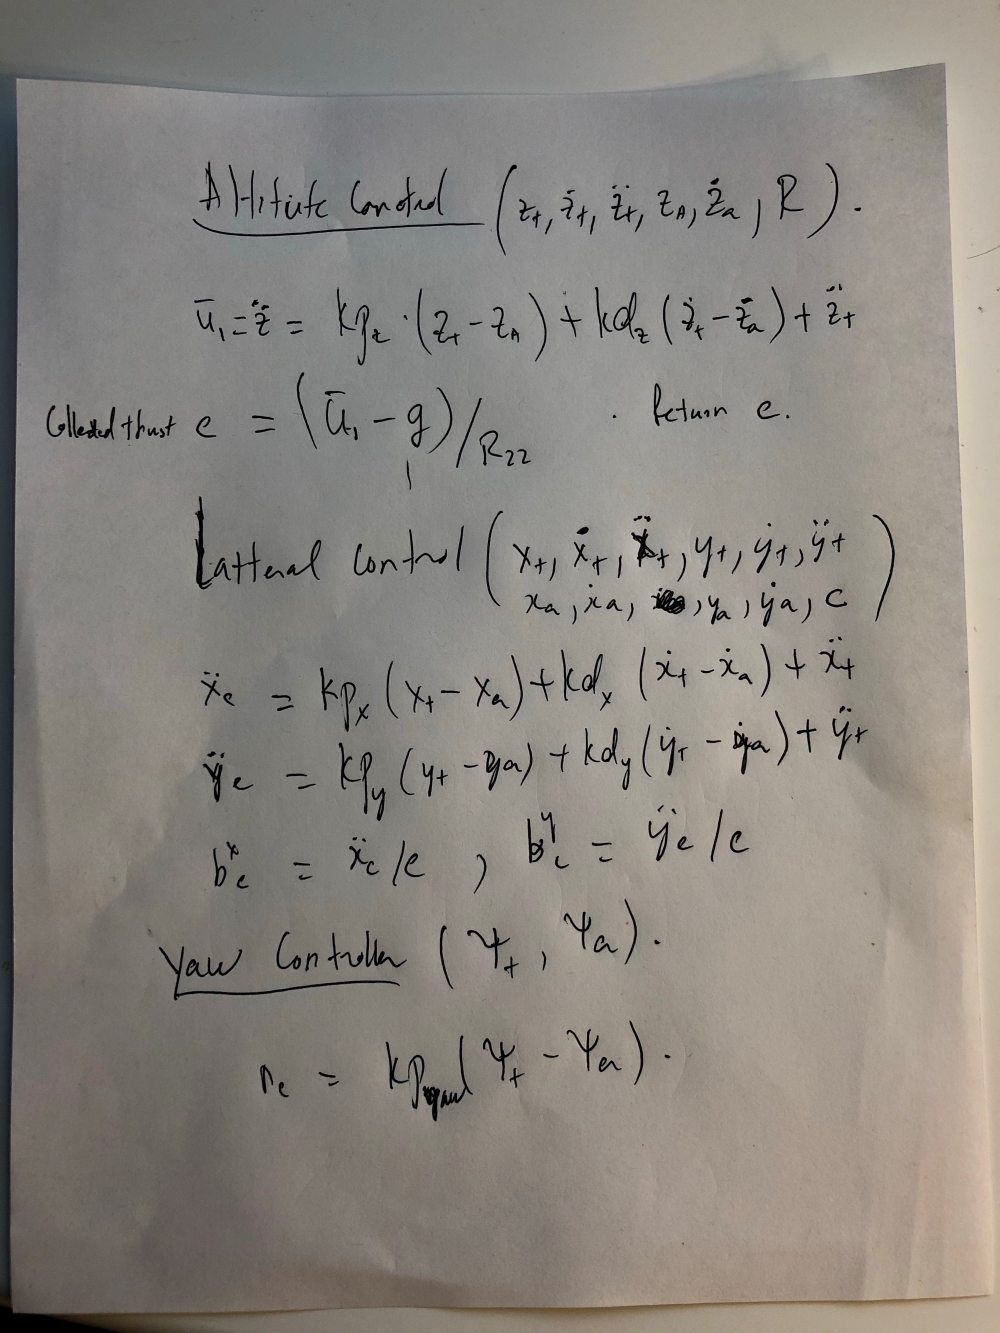 Altitute Control (z_t, ż_t, z̈_t, z_A, ż_a, R).
ū₁ = z̈ = kp_z · (z_t − z_A) + kd_z (ż_t − ż_a) + z̈_t
Collected thrust c = (ū₁ − g)/R₂₂ . Return c.
Latteral control (x_t, ẋ_t, ẍ_t, y_t, ẏ_t, ÿ_t
x_a, ẋ_a, , y_a, ẏ_a, c)
ẍ_c = kp_x (x_t − x_a) + kd_x (ẋ_t − ẋ_a) + ẍ_t
ÿ_c = kp_y (y_t − y_a) + kd_y (ẏ_t − ẏ_a) + ÿ_t
b_c^x = ẍ_c/c , b_c^y = ÿ_c/c
Yaw Controller (Ψ_t, Ψ_a).
r_c = kp_yaw (Ψ_t − Ψ_a).